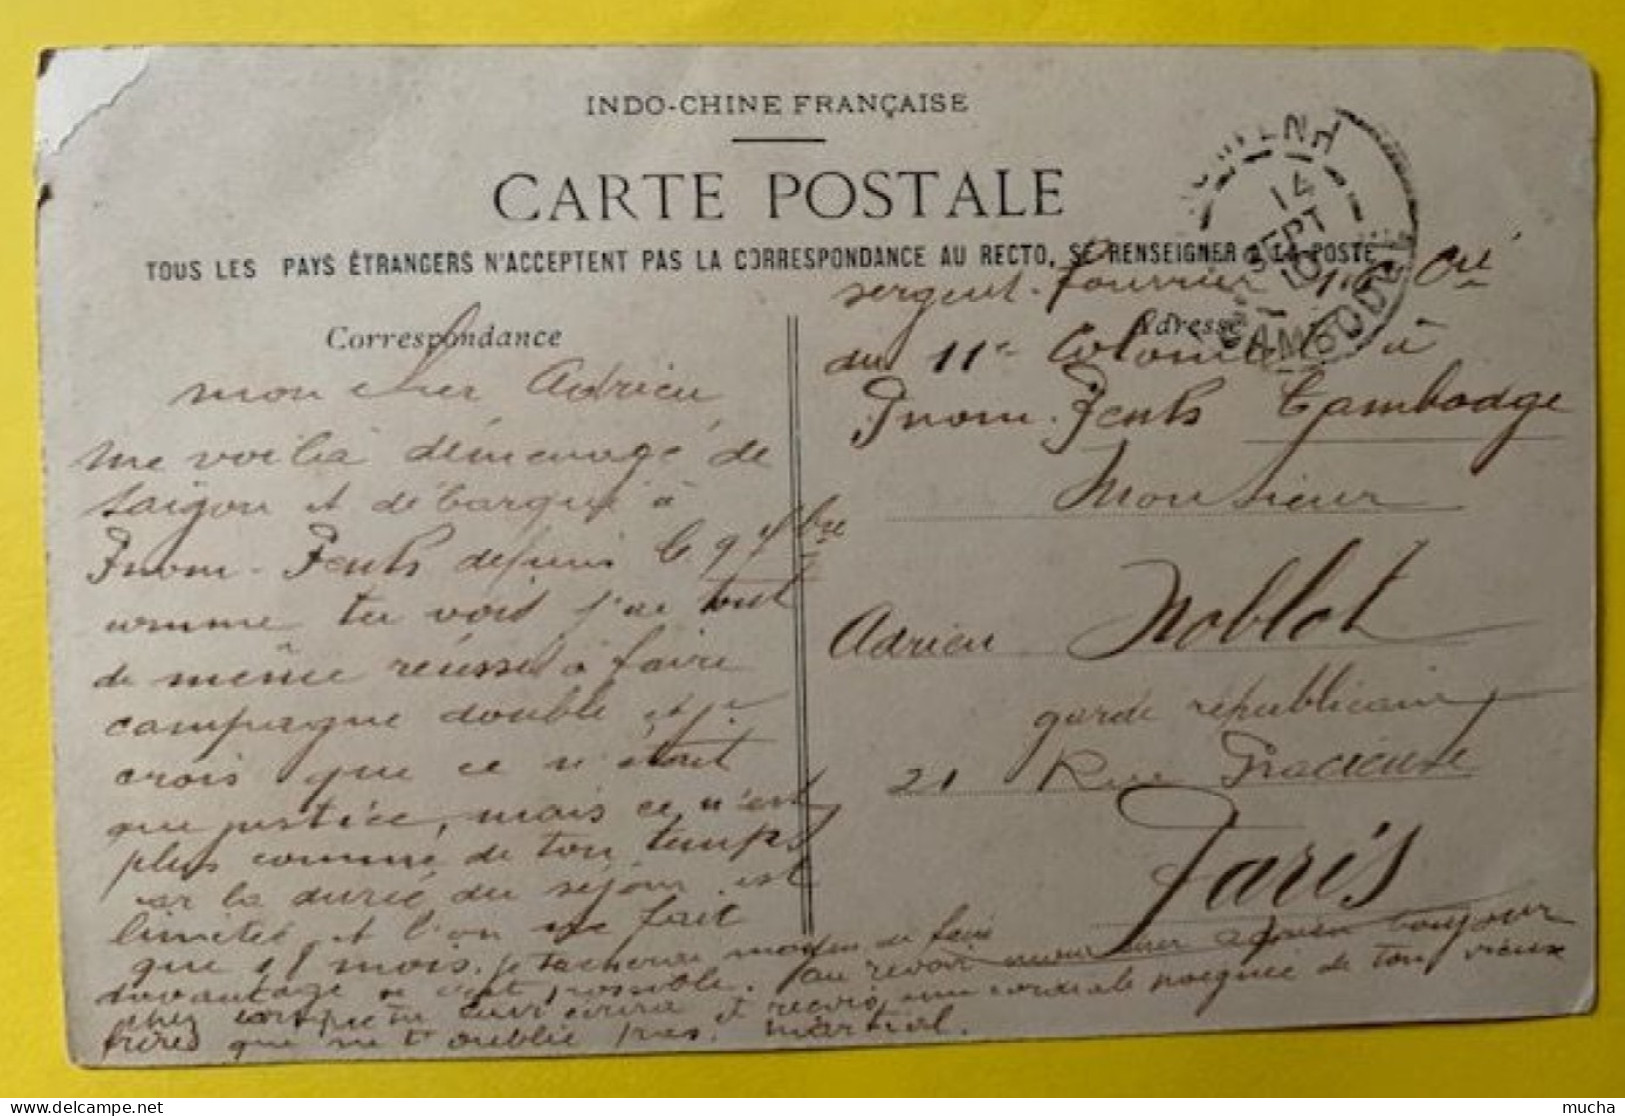 INDO-CHINE FRANÇAISE
CARTE POSTALE
TOUS LES PAYS ÉTRANGERS N'ACCEPTENT PAS LA CORRESPONDANCE AU RECTO, SE RENSEIGNER A LA POSTE
14
SEPT
10
CAMBODGE
Correspondance
mon cher Adrien
me voilà démenagé de
Saigon et débarqué à
Pnom-Penh depuis le 9 7bre
comme tu vois j'ai tout
de même réussi à faire
campagne double et je
crois que ce n'était
que justice, mais ce n'est
plus comme de ton temps
car la durée du séjour est
limitée et l'on ne fait
que 18 mois. je tacherai moyen de faire
davantage si c'est possible. au revoir mon cher Adrien bonjour
chez toi reçois une cordiale poignée de ton vieux
frères que ne t'oublie pas. Martial.
Adresse
sergent-fourrier Cie
du 11e Colonial à
Pnom-Penh Cambodge
Monsieur
Adrien Noblet
garde républicain
21 Rue Gracieuse
Paris
delcampe.net
mucha